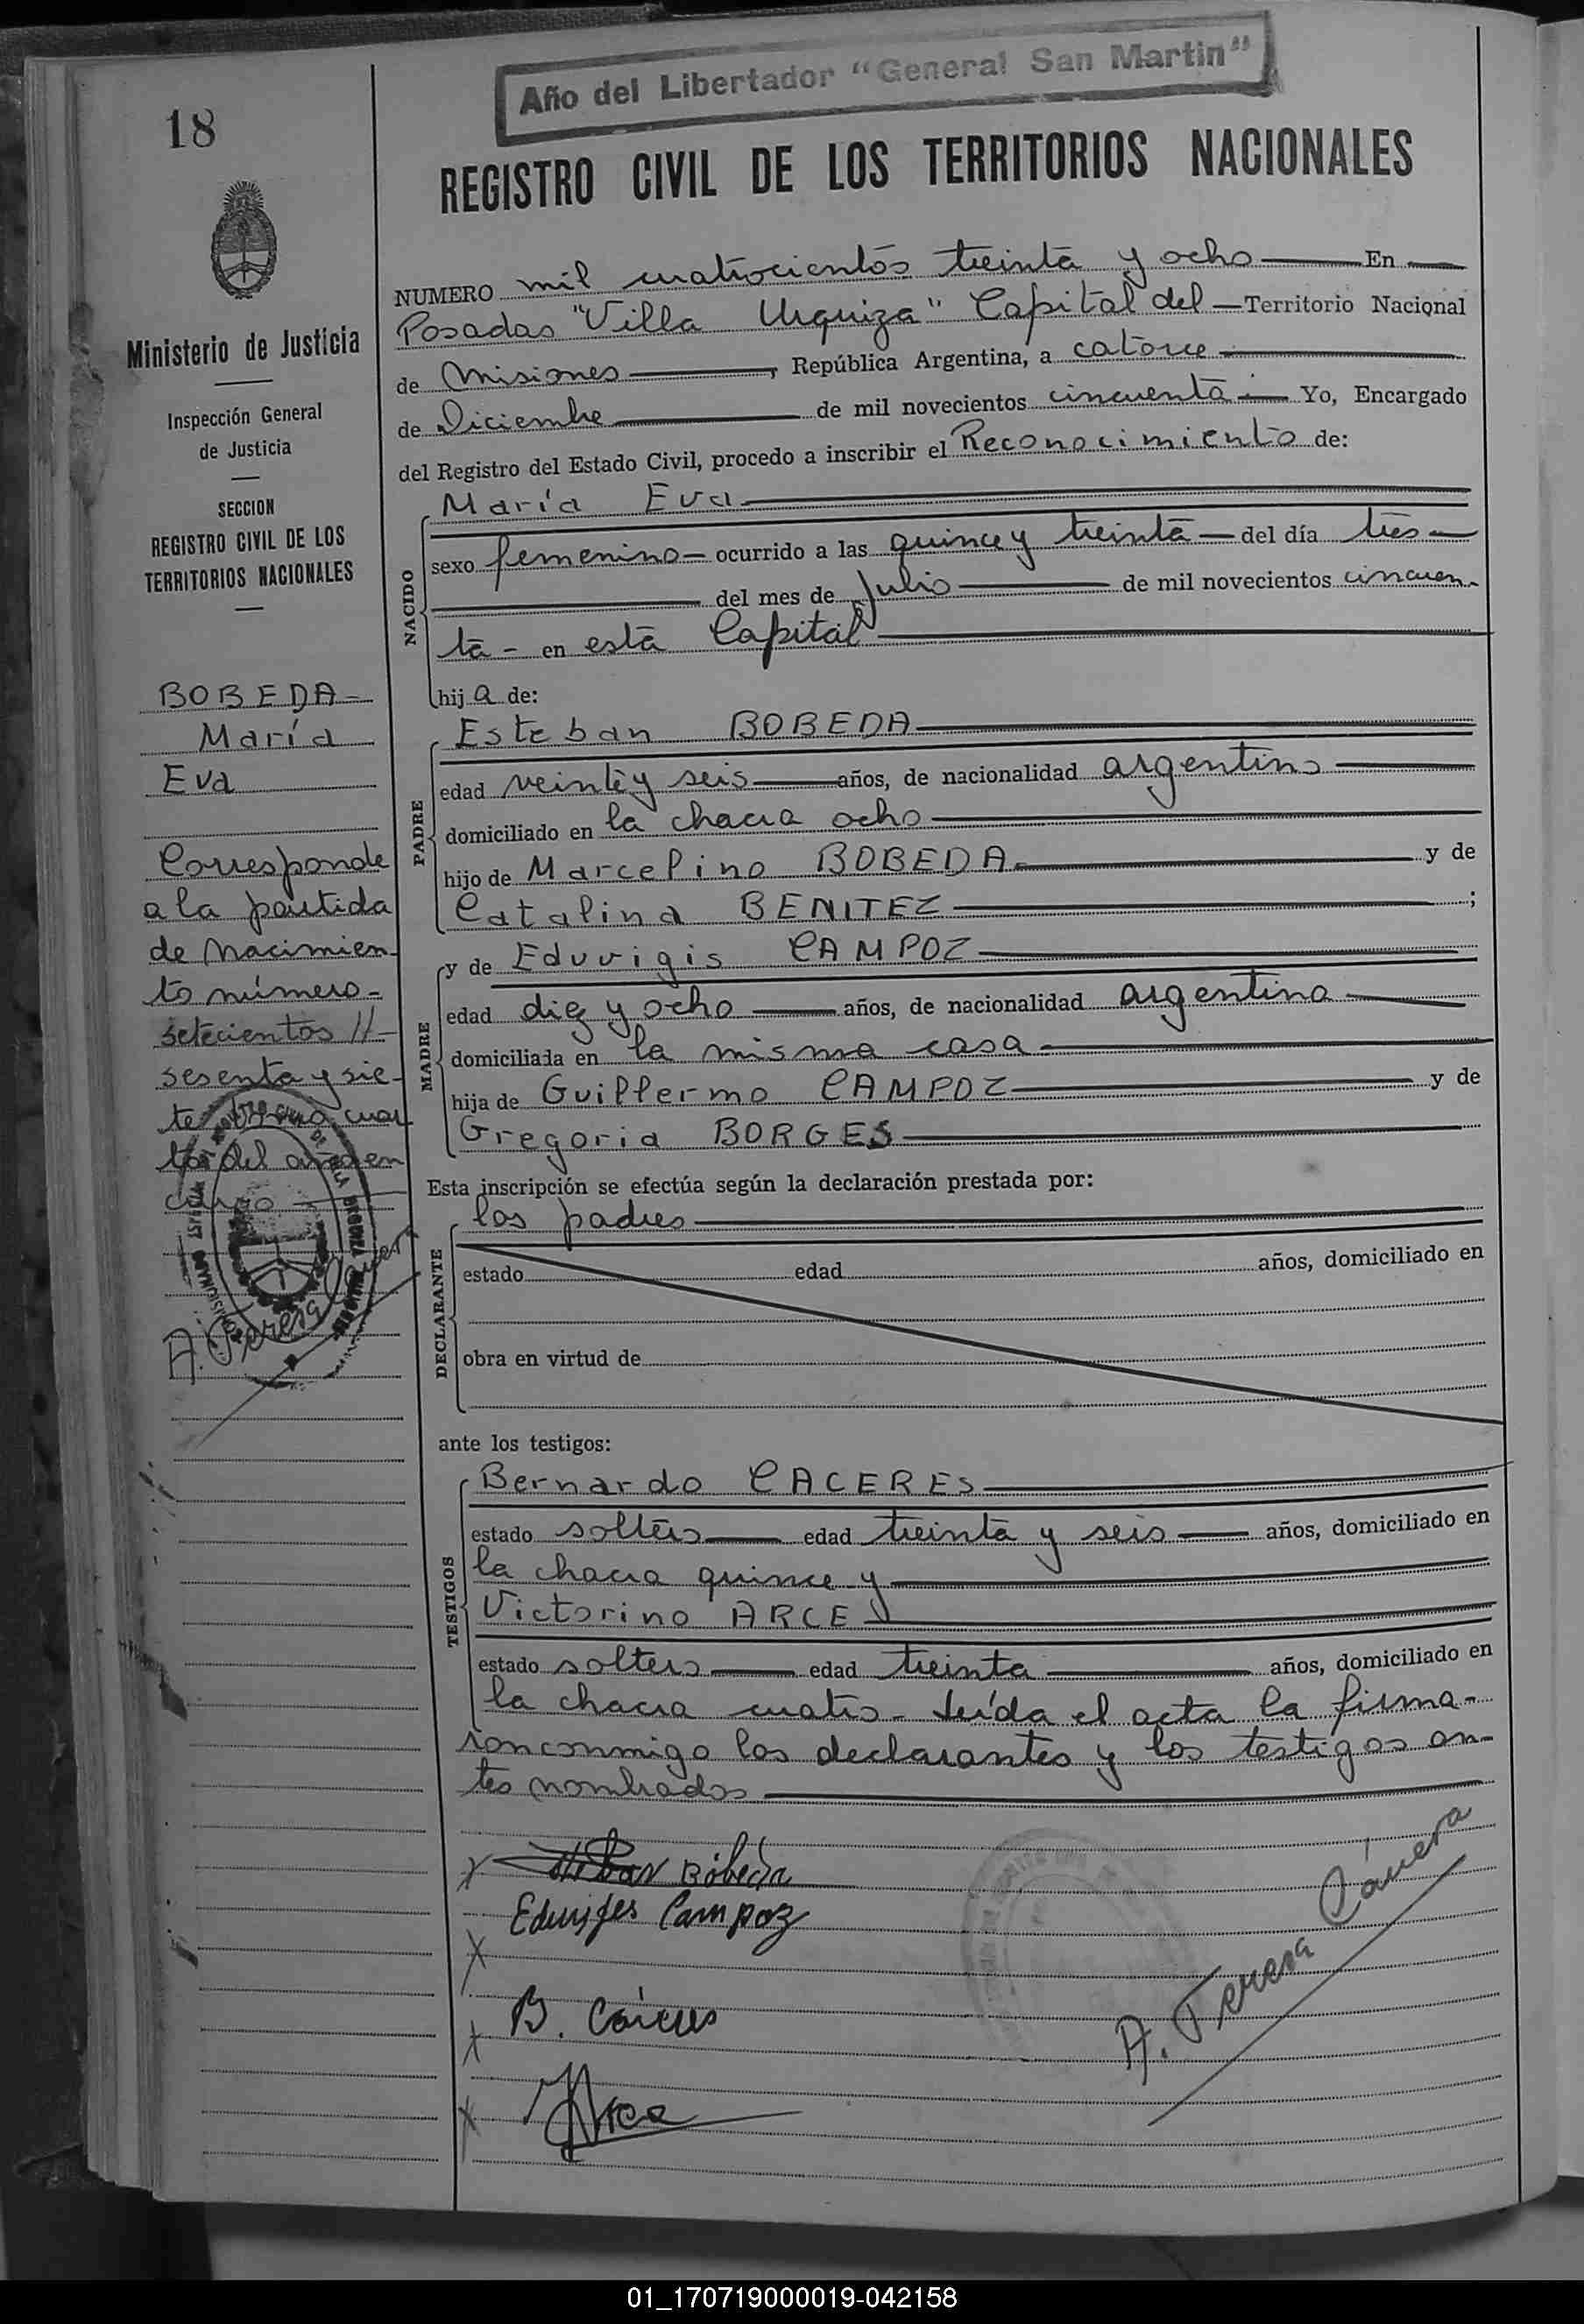 Año del Libertador "General San Martin"
18
REGISTRO CIVIL DE LOS TERRITORIOS NACIONALES
Ministerio de Justicia
Inspección General
de Justicia
SECCION
REGISTRO CIVIL DE LOS
TERRITORIOS NACIONALES
BOBEDA
María
Eva
Corresponde
a la partida
de nacimien
to número
setecientos //
sesenta y sie
te tomo cuar
to del año en
curso
A. Ferera Cávera
NUMERO mil cuatrocientos treinta y ocho En
Posadas "Villa Urquiza" Capital del Territorio Nacional
de Misiones, República Argentina, a catorce
de Diciembre de mil novecientos cincuenta Yo, Encargado
del Registro del Estado Civil, procedo a inscribir el Reconocimiento de:
NACIDO
María Eva
sexo femenino ocurrido a las quince y treinta del día tres
del mes de Julio de mil novecientos cincuen
ta - en esta Capital
hija de:
PADRE
Esteban BOBEDA
edad veinte y seis años, de nacionalidad argentino
domiciliado en la chacra ocho
hijo de Marcelino BOBEDA y de
Catalina BENITEZ ;
MADRE
y de Eduvigis CAMPOZ
edad diez y ocho años, de nacionalidad argentina
domiciliada en la misma casa
hija de Guillermo CAMPOZ y de
Gregoria BORGES
Esta inscripción se efectúa según la declaración prestada por:
DECLARANTE
los padres
estado edad años, domiciliado en
obra en virtud de
ante los testigos:
TESTIGOS
Bernardo CACERES
estado soltero edad treinta y seis años, domiciliado en
la chacra quince y
Victorino ARCE
estado soltero edad treinta años, domiciliado en
la chacra cuatro - Leída el acta la firma-
ron conmigo los declarantes y los testigos an-
tes nombrados
Esteban Bóbeda
Eduvijes Campoz
B. Cáceres
VArce
A. Ferera Cávera
01_170719000019-042158